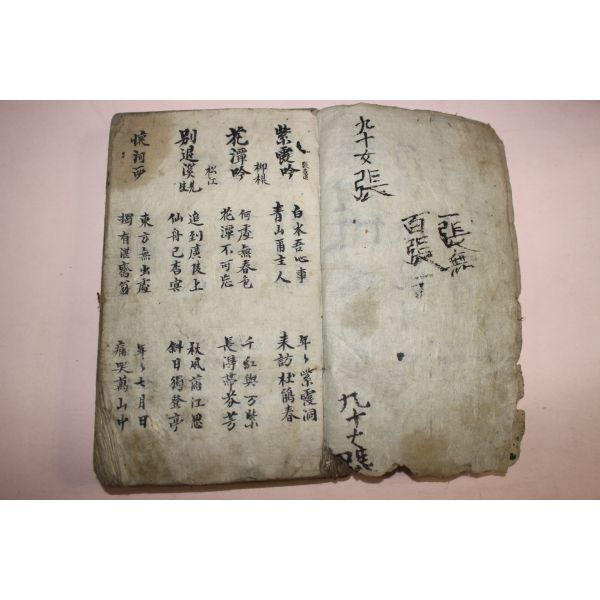 九十女張
一張無
百張一
九十七張
紫霞吟
白水吾心事 年〻紫霞洞
青山爾主人 来訪杜鵑春
花潭吟 柳根
何處無春色 千紅與万紫
花潭不可忘 長淂帶芬芳
別退溪先生 松江
追到廣陵上 秋風滿江思
仙舟已杳冥 斜日獨登亭
懷河西
東方無出處 年〻七月日
獨有湛齋翁 痛哭萬山中